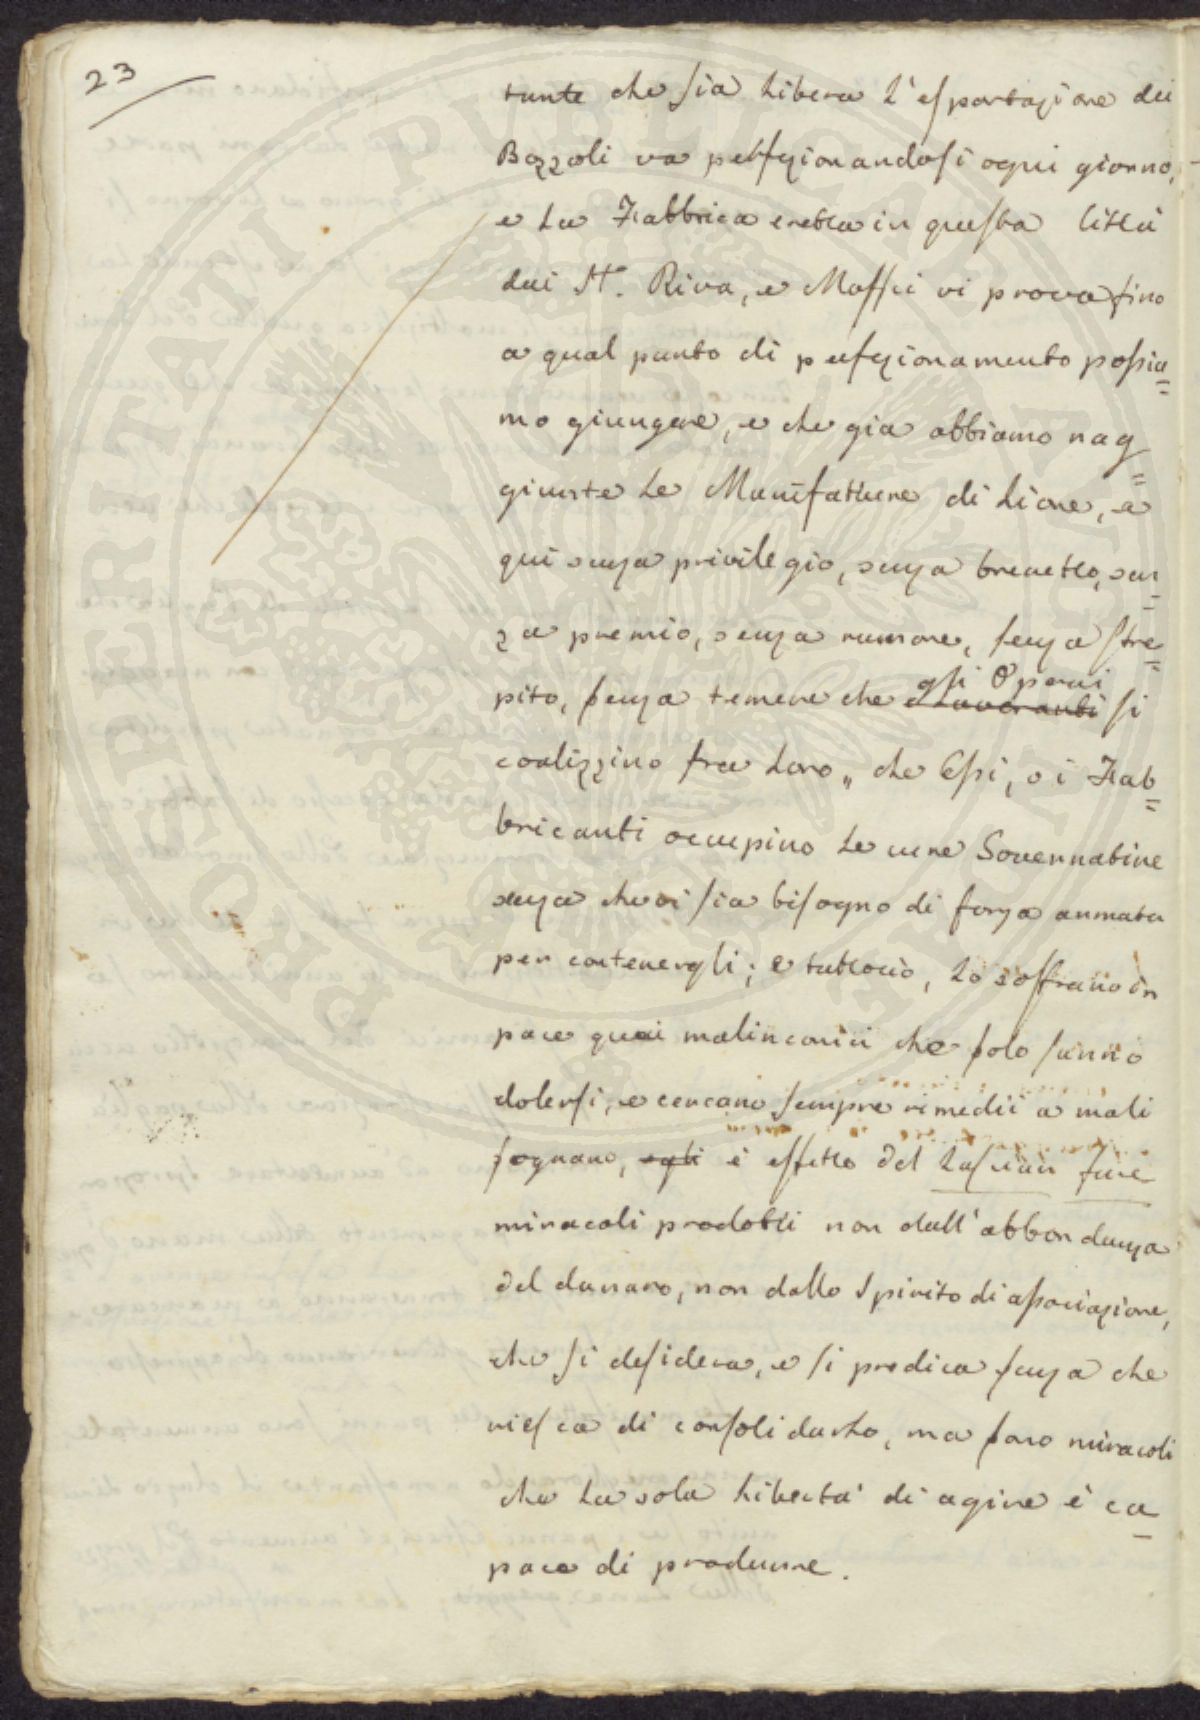 23
tante che sia libera l'esportazione dei
Bozzoli va perfezionandosi ogni giorno,
e la Fabbrica eretta in questa Città
dai Sri. Riva, e Maffei vi prova fino
a qual punto di perfezionamento possia=
mo giungere, e che già abbiamo rag=
giunte le Manifatture di Lione, e
qui senza privilegio, senza brevetto, sen=
za premio, senza rumore, senza stre=
pito, senza temere che gli Operai si
coalizzino fra loro„ che Essi, o i Fab=
bricanti occupino le cure Governative
senza che vi sia bisogno di forza armata
per contenergli; e tuttociò, lo soffrano in
pace quei malinconici che solo sanno
dolersi, e cercano sempre rimedii a mali
sognano, egli è effetto del lasciar fare
miracoli prodotti non dall'abbondanza
del danaro, non dallo spirito di associazione,
che si desidera, e si predica senza che
riesca di consolidarlo, ma sono miracoli
che la sola libertà di agire è ca=
pace di produrre.
PROSPERITATI PVBLICAE AVGENDAE